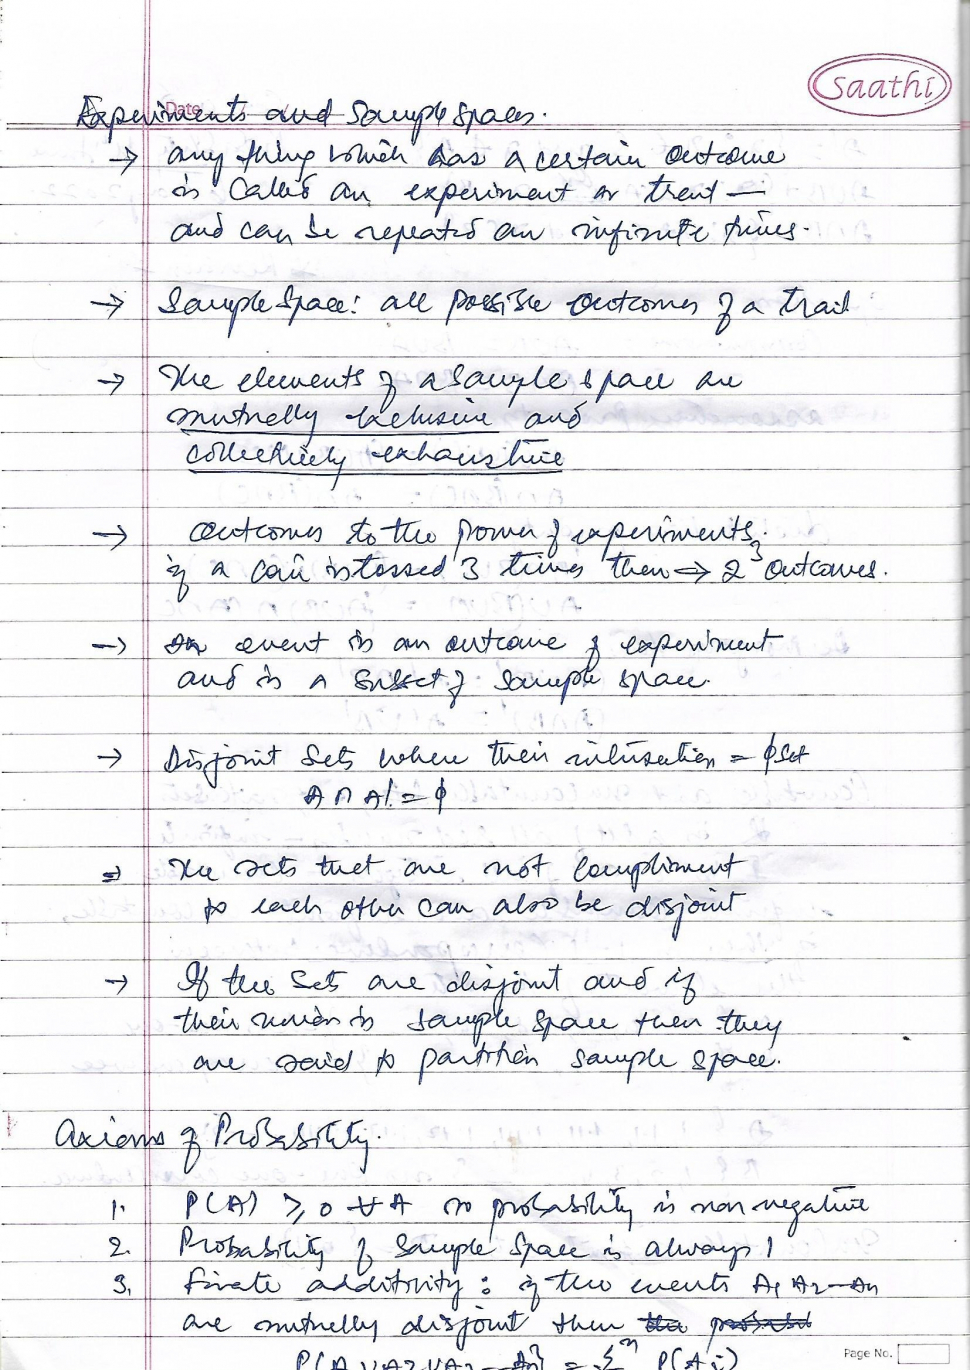 Saathi
Date
Experiments and Sample Spaces.
→ any thing which has a certain outcome
is called an experiment or trail —
and can be repeated an infinite times.
→ Sample Space: all possible outcomes of a trail
→ The elements of a sample space are
mutually exclusive and
collectively exhaustive
→ outcomes to the power of experiments.
if a coin is tossed 3 times then ⇒ 2³ outcomes.
→ An event is an outcome of experiment
and is a subset of sample space.
→ Disjoint Sets where their intersection = ϕ set
A ∩ A' = ϕ
⇒ The sets that are not compliment
to each other can also be disjoint
→ If the sets are disjoint and if
their union is sample space then they
are said to partition sample space.
Axioms of Probability.
1. P(A) ≥ 0 ∀ A so probability is non negative
2. Probability of Sample Space is always 1
3. Finate additivity: if the events A1 A2 — An
are mutually disjoint then the
P(A1 ∪ A2 ∪ A3 — An) = Σ^n P(Ai)
Page No.